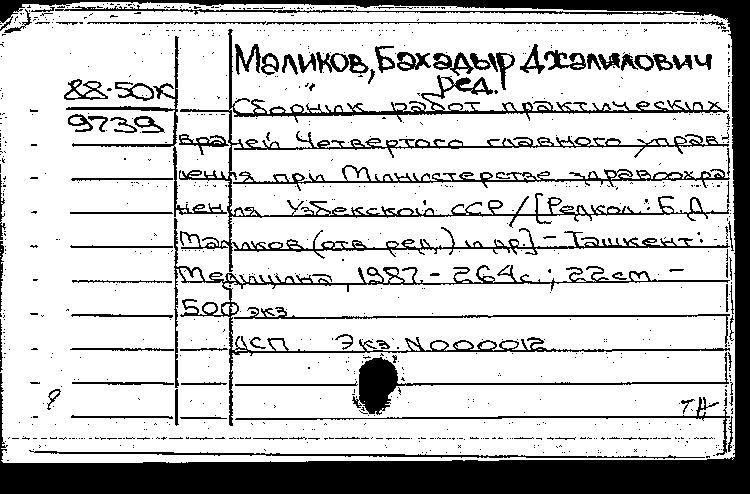 Маликов, Бахадыр Джалилович
ред.
88-50К
9739
Сборник работ практических
врачей Четвертого главного управ-
ления при Министерстве здравоохра
нения Узбекской ССР / [Редкол.: Б.Д.
Маликов (отв. ред.) и др.] - Ташкент:
Медицина, 1987. - 264с.; 22см. -
500 экз.
ДСП. Экз. N000012